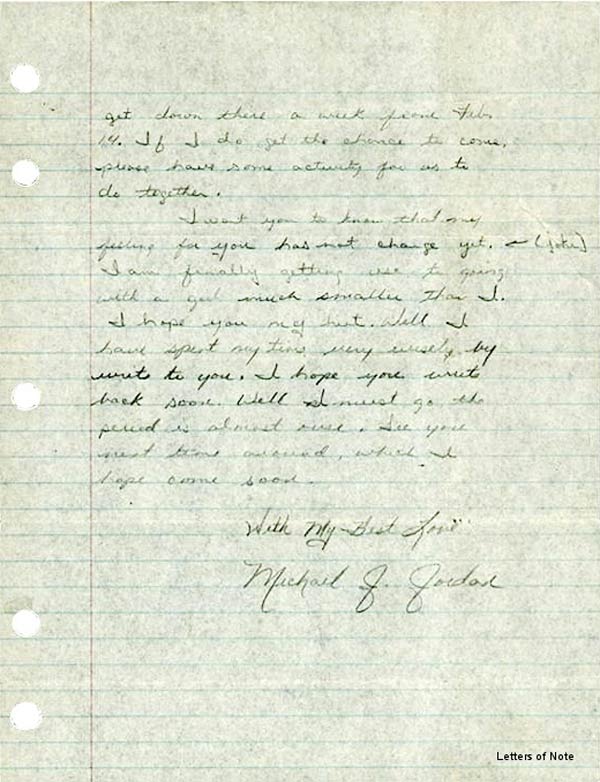 get down there a week from Feb.
14. If I do get the chance to come,
please have some activity for us to
do together.
I want you to know that my
feeling for you has not change yet. ← (joke)
I am finally getting use to going
with a girl much smaller than I.
I hope you my
have spent my time very wisely by
write to you. I hope you write
back soon. Well I must go the
period is almost over. See you
next time around, which I
hope come soon.
With My Best Love
Michael J. Jordan
Letters of Note